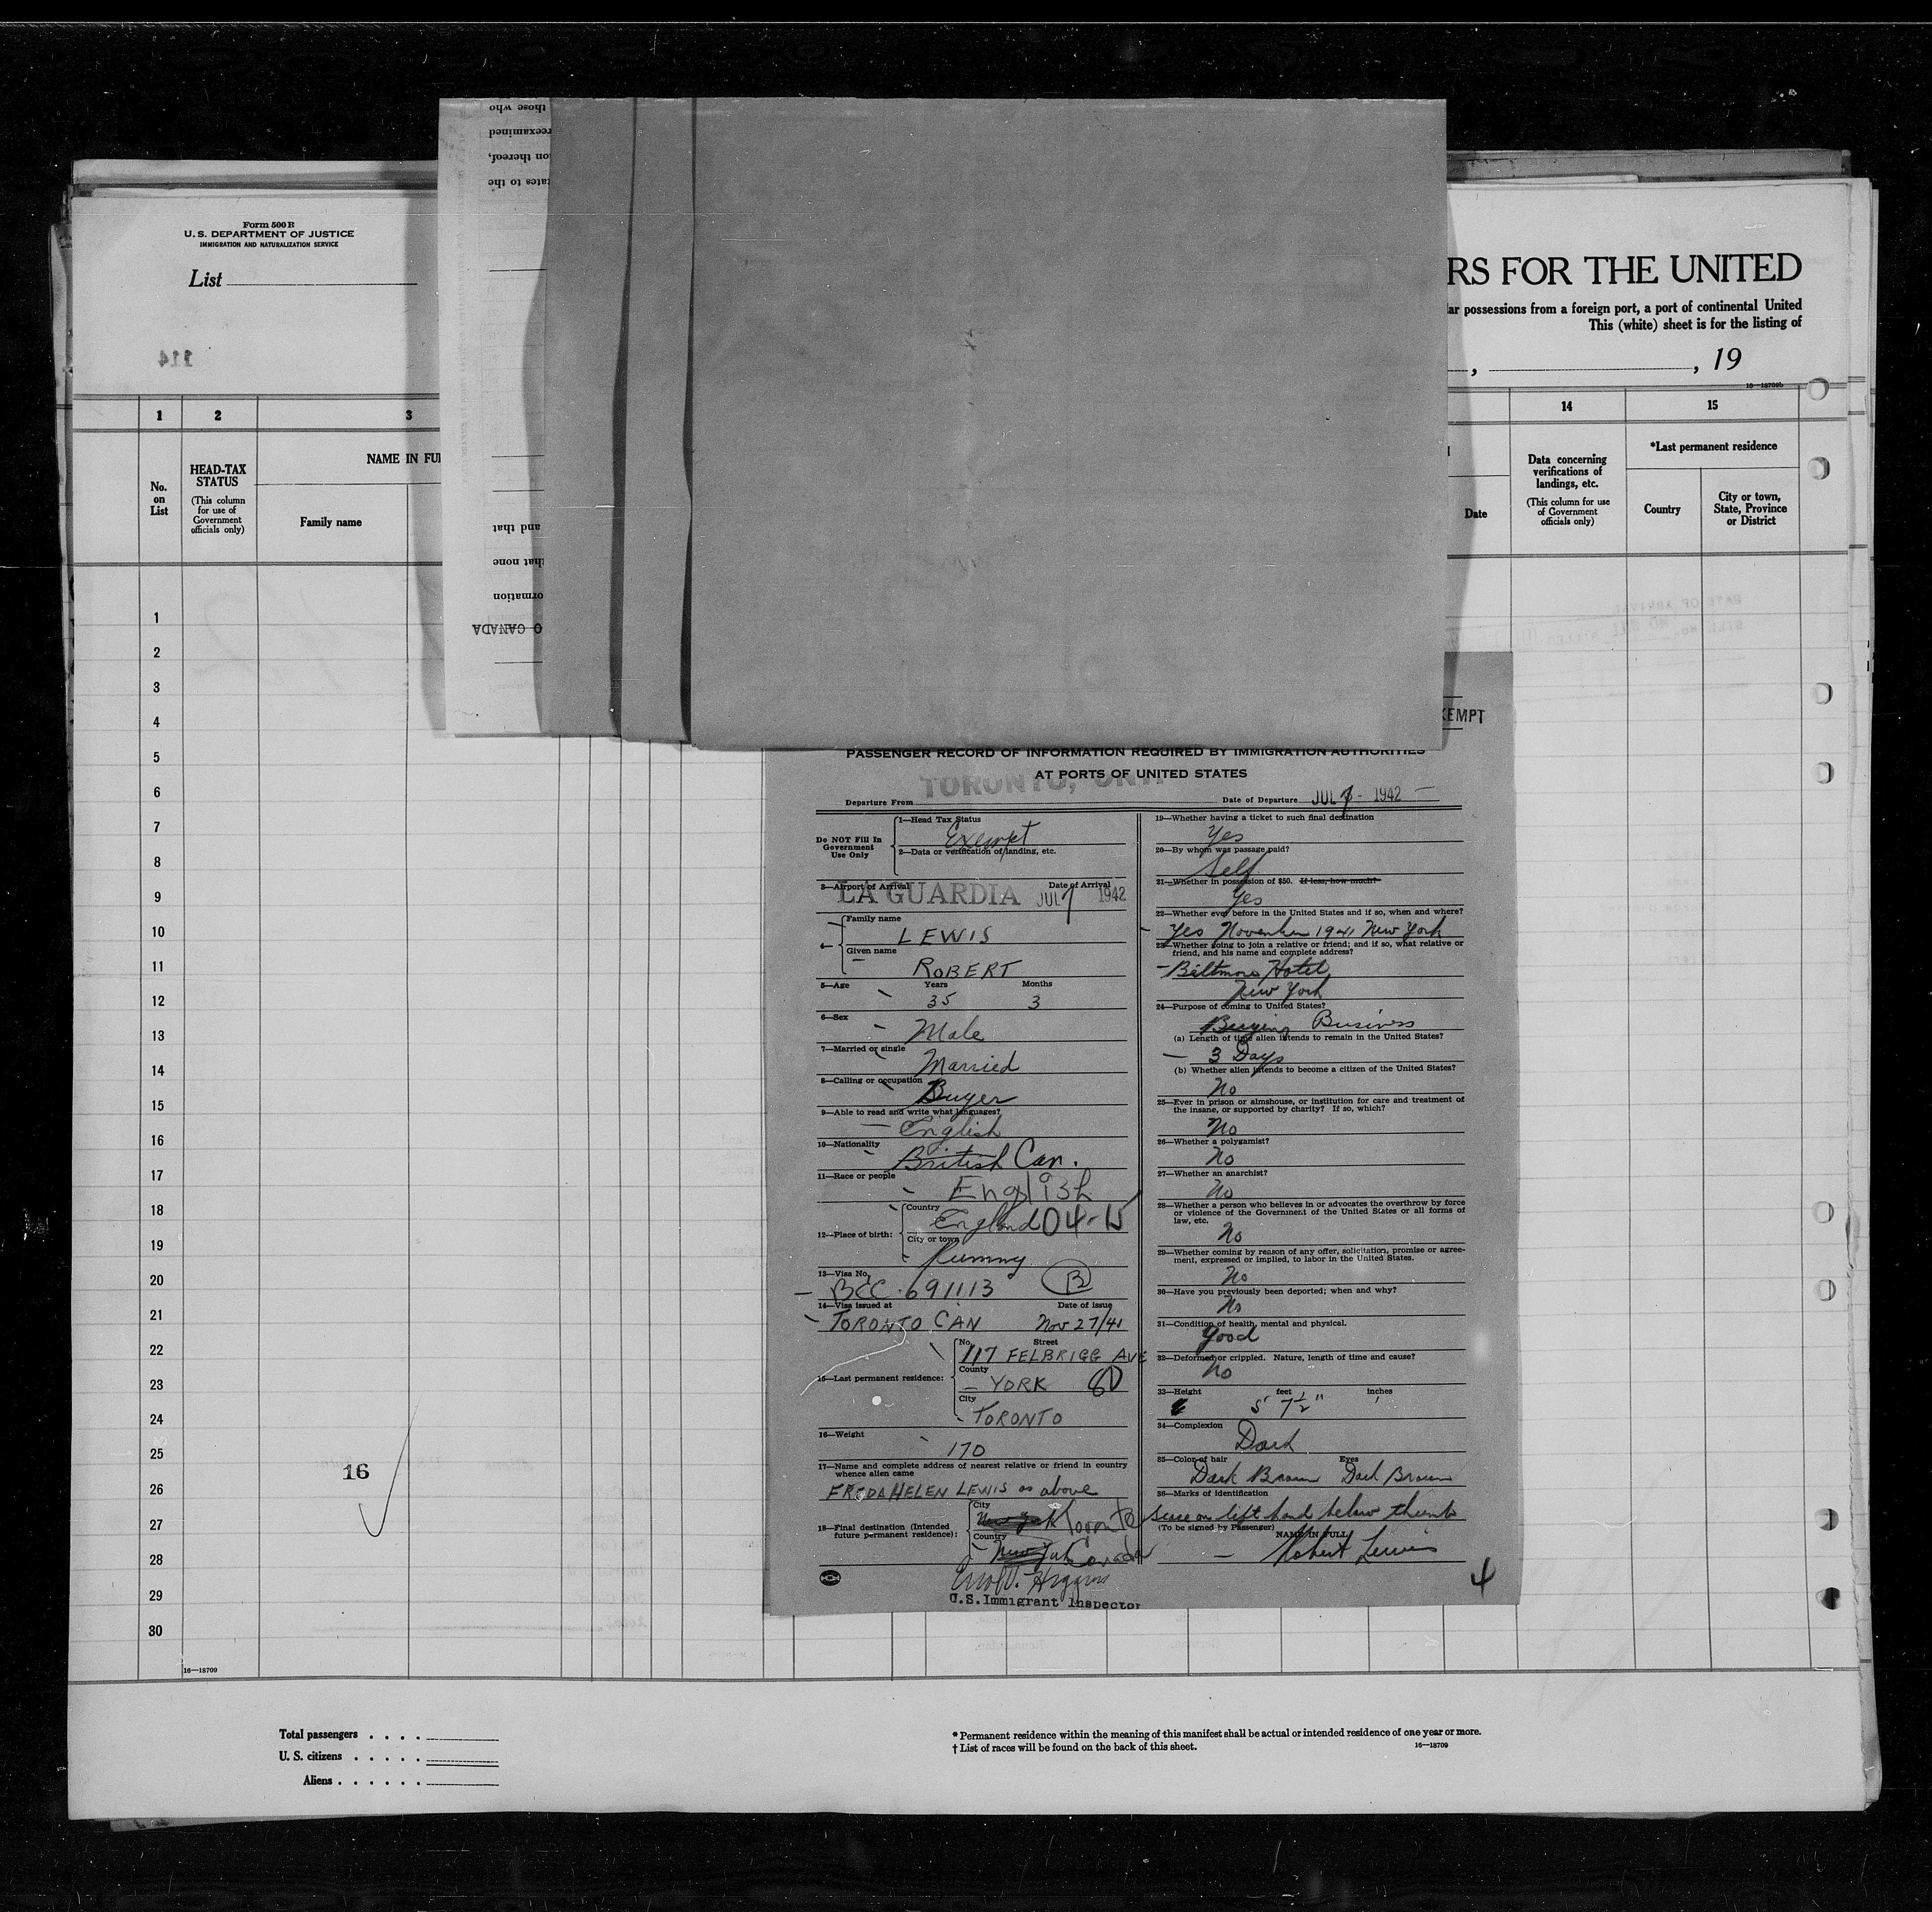 those who
reexamined
on thereof,
ates to the
and that
that none
ormation
O CANADA
Form 500 B
U. S. DEPARTMENT OF JUSTICE
IMMIGRATION AND NATURALIZATION SERVICE
List
114
RS FOR THE UNITED
ar possessions from a foreign port, a port of continental United
This (white) sheet is for the listing of
, , 19
16—18709b
1 2 3 14 15
No. on List
HEAD-TAX STATUS
(This column for use of Government officials only)
NAME IN FUL
Family name
Date
Data concerning verifications of landings, etc.
(This column for use of Government officials only)
*Last permanent residence
Country
City or town, State, Province or District
1
2
3
4
5
6
7
8
9
10
11
12
13
14
15
16
17
18
19
20
21
22
23
24
25
26
27
28
29
30
16
16—18709
EMPT
PASSENGER RECORD OF INFORMATION REQUIRED BY IMMIGRATION AUTHORITIES
AT PORTS OF UNITED STATES
Departure From TORONTO, ONT.
Date of Departure JUL 7 - 1942
Do NOT Fill In Government Use Only
1—Head Tax Status
Exempt
2—Data or verification of landing, etc.
3—Airport of Arrival Date of Arrival
LA GUARDIA JUL 7 1942
4— Family name
LEWIS
Given name
ROBERT
5—Age Years Months
35 3
6—Sex
Male
7—Married or single
Married
8—Calling or occupation
Buyer
9—Able to read and write what languages?
English
10—Nationality
British Can.
11—Race or people
English
12—Place of birth:
Country
England 04-15
City or town
13—Visa No.
BCC. 691113 B
14—Visa issued at Date of issue
TORONTO CAN Nov 27/41
15—Last permanent residence:
No. Street
117 FELBRIGG AVE
County
YORK
City
TORONTO
16—Weight
170
17—Name and complete address of nearest relative or friend in country
whence alien came
FREDA HELEN LEWIS as above
18—Final destination (Intended future permanent residence):
City
New York Toronto
Country
New York Canada
U.S. Immigrant Inspector
19—Whether having a ticket to such final destination
Yes
20—By whom was passage paid?
Self
21—Whether in possession of $50. If less, how much?
Yes
22—Whether ever before in the United States and if so, when and where?
Yes November 1941 New York
23—Whether going to join a relative or friend; and if so, what relative or
friend, and his name and complete address?
Biltmore Hotel
New York
24—Purpose of coming to United States?
Buying Business
(a) Length of time alien intends to remain in the United States?
3 Days
(b) Whether alien intends to become a citizen of the United States?
No
25—Ever in prison or almshouse, or institution for care and treatment of
the insane, or supported by charity? If so, which?
No
26—Whether a polygamist?
No
27—Whether an anarchist?
No
28—Whether a person who believes in or advocates the overthrow by force
or violence of the Government of the United States or all forms of
law, etc.
No
29—Whether coming by reason of any offer, solicitation, promise or agree-
ment, expressed or implied, to labor in the United States.
No
30—Have you previously been deported; when and why?
No
31—Condition of health, mental and physical.
Good
32—Deformed or crippled. Nature, length of time and cause?
No
33—Height feet inches
5' 7½"
34—Complexion
Dark
35—Color of hair Eyes
Dark Brown Dark Brown
36—Marks of identification
on left hand below thumb
(To be signed by Passenger) NAME IN FULL
Robert Lewis
4
Total passengers . . . .
U. S. citizens . . . . .
Aliens . . . . . .
* Permanent residence within the meaning of this manifest shall be actual or intended residence of one year or more.
† List of races will be found on the back of this sheet.
16—18709